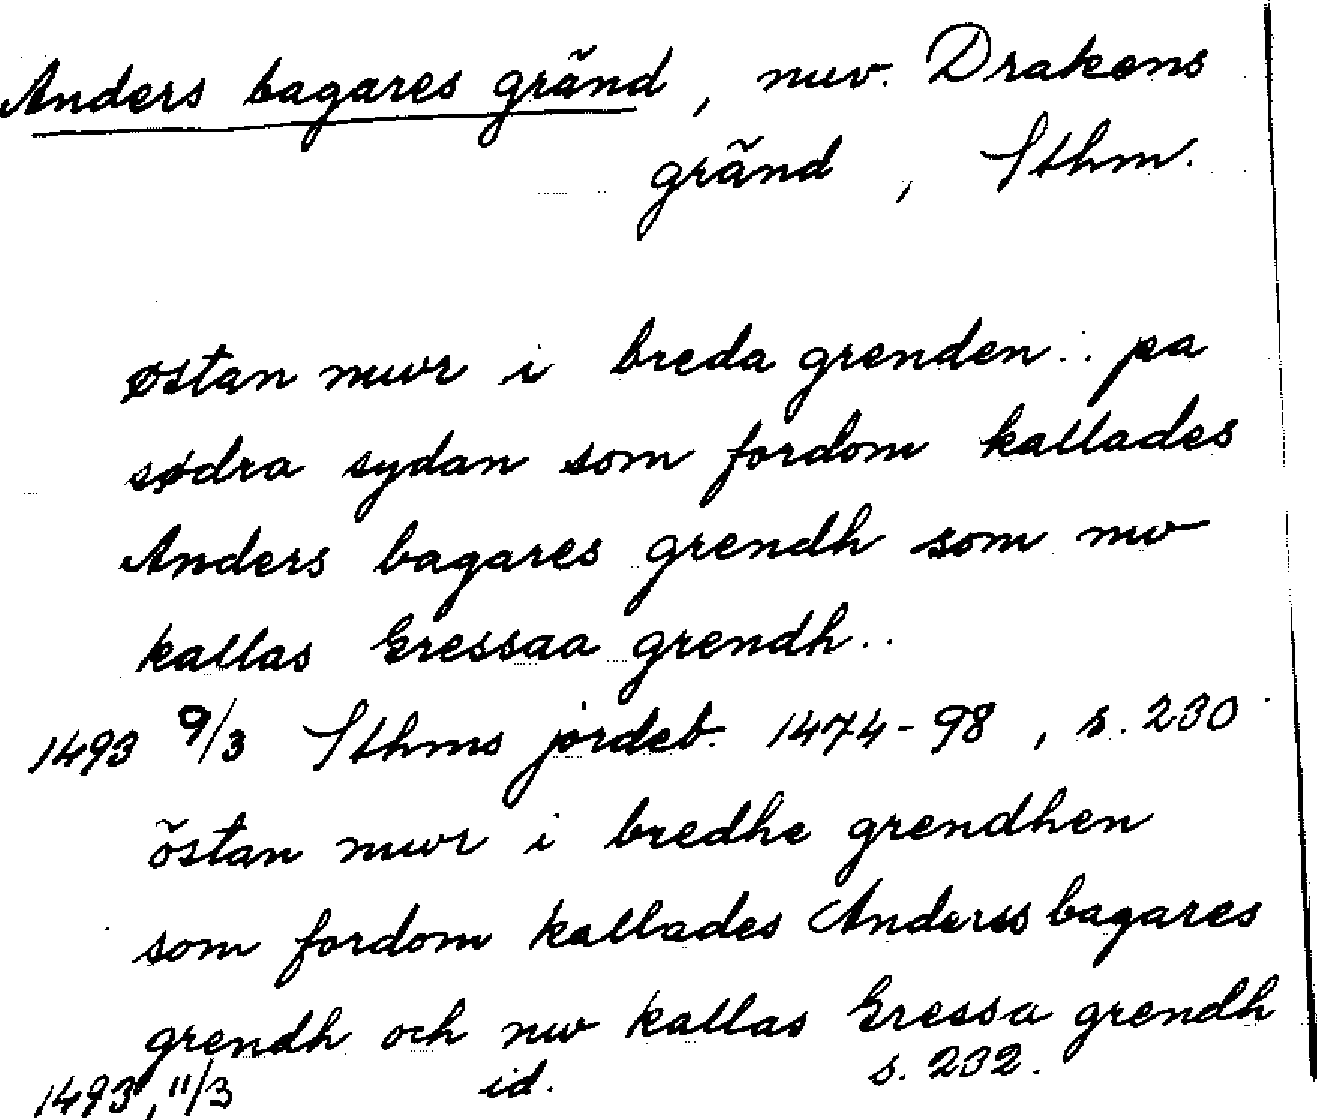 Anders bagares gränd, nuv. Drakens
gränd, Sthm.
østan mwr i breda grenden.. pa
södra sydan som fordom kallades
Anders bagares grendh som nw
kallas Eressaa grendh..
1493 9/3 Sthms jordeb. 1474-98, s. 230
östan mwr i bredhe grendhen
som fordom kallades Anderss bagares
grendh och nw kallas Eressa grendh
1493, 11/3 id. s. 232.